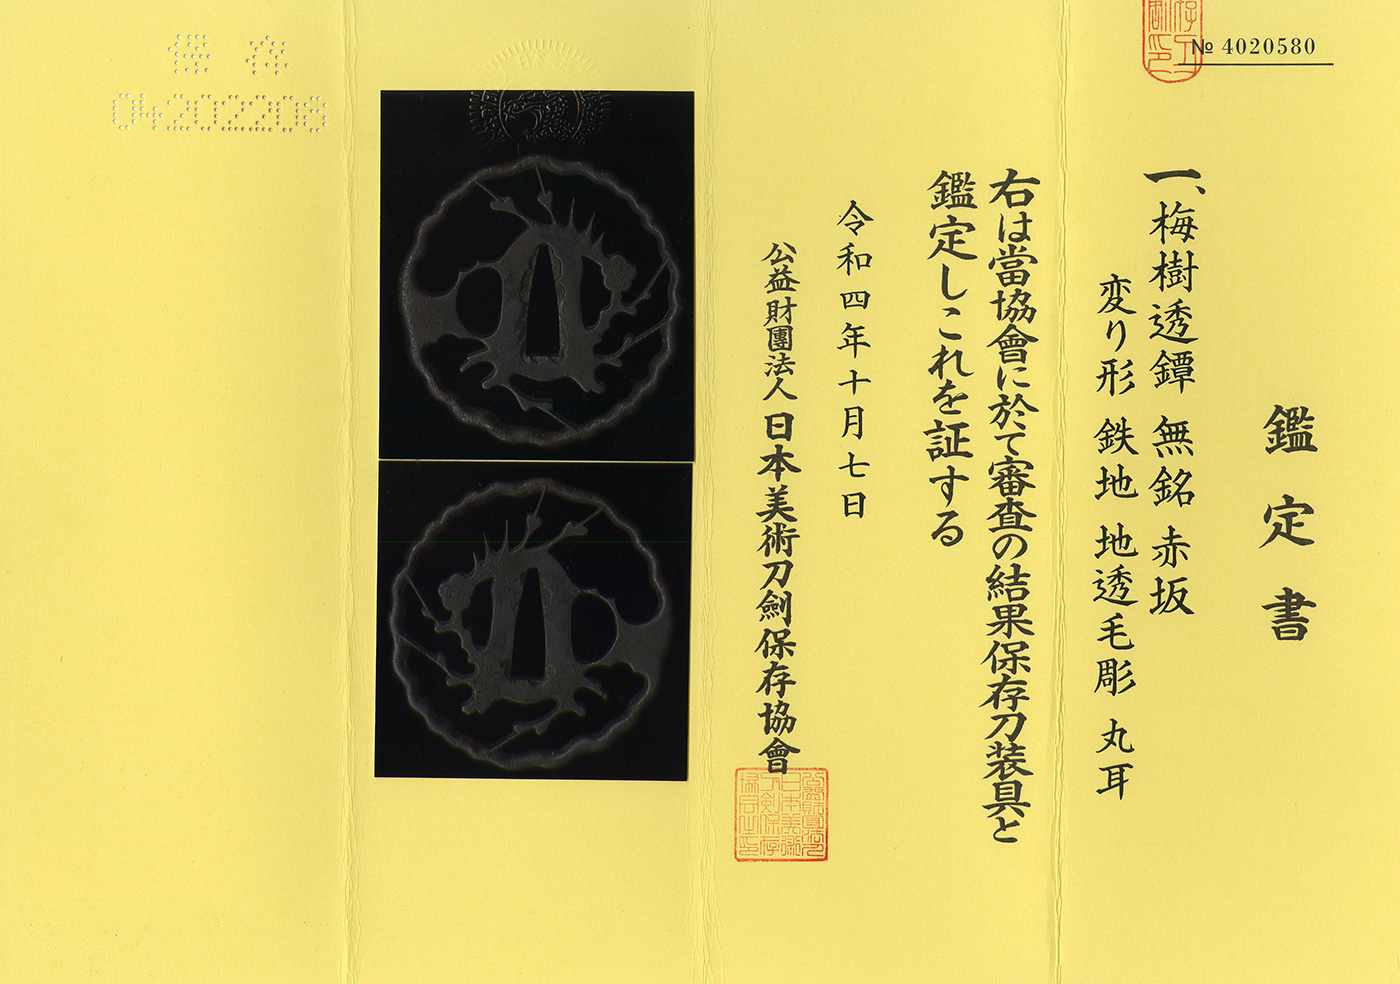 № 4020580
鑑定書
一、梅樹透鐔 無銘 赤坂
変り形 鉄地 地透毛彫 丸耳
右は當協會に於て審査の結果保存刀装具と
鑑定しこれを証する
令和四年十月七日
公益財團法人 日本美術刀劍保存協會
保存
04202208